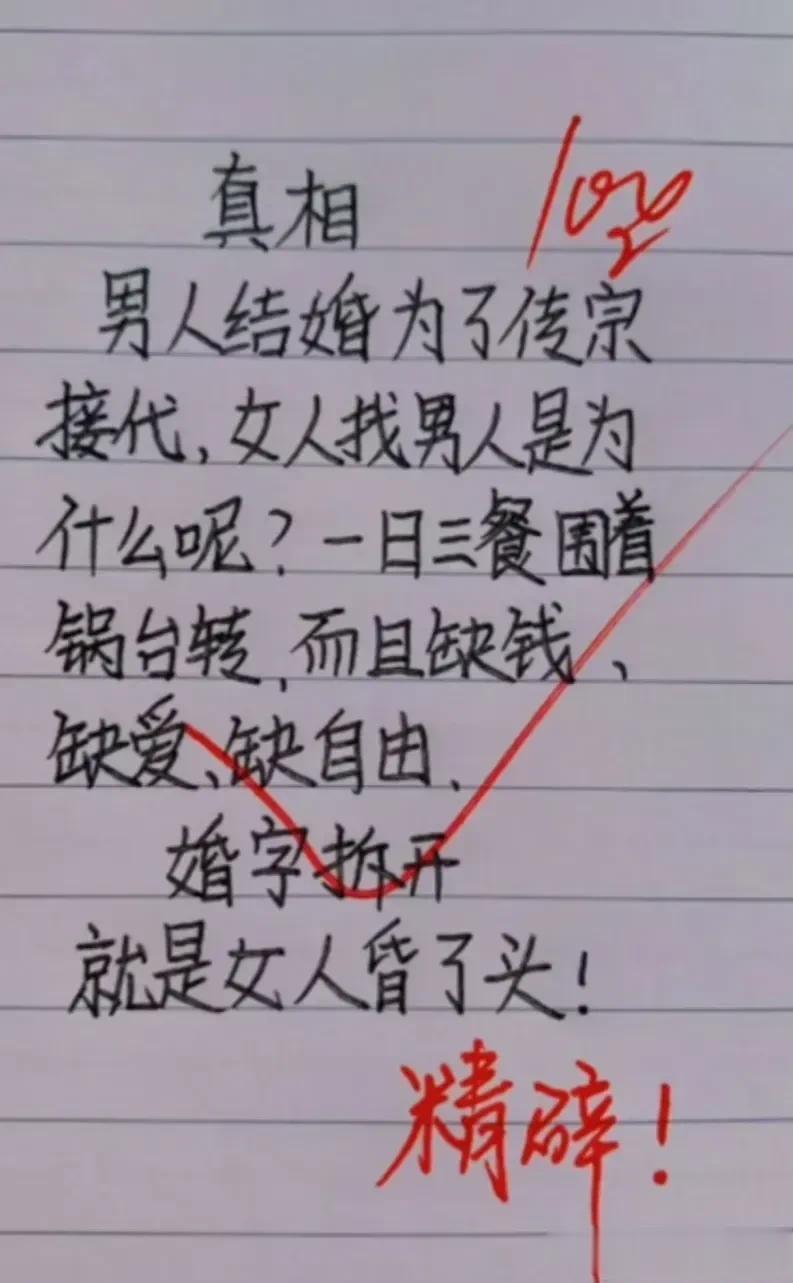 真相
100
男人结婚为了传宗
接代,女人找男人是为
什么呢?一日三餐围着
锅台转,而且缺钱、
缺爱、缺自由.
婚字拆开
就是女人昏了头!
精辟!